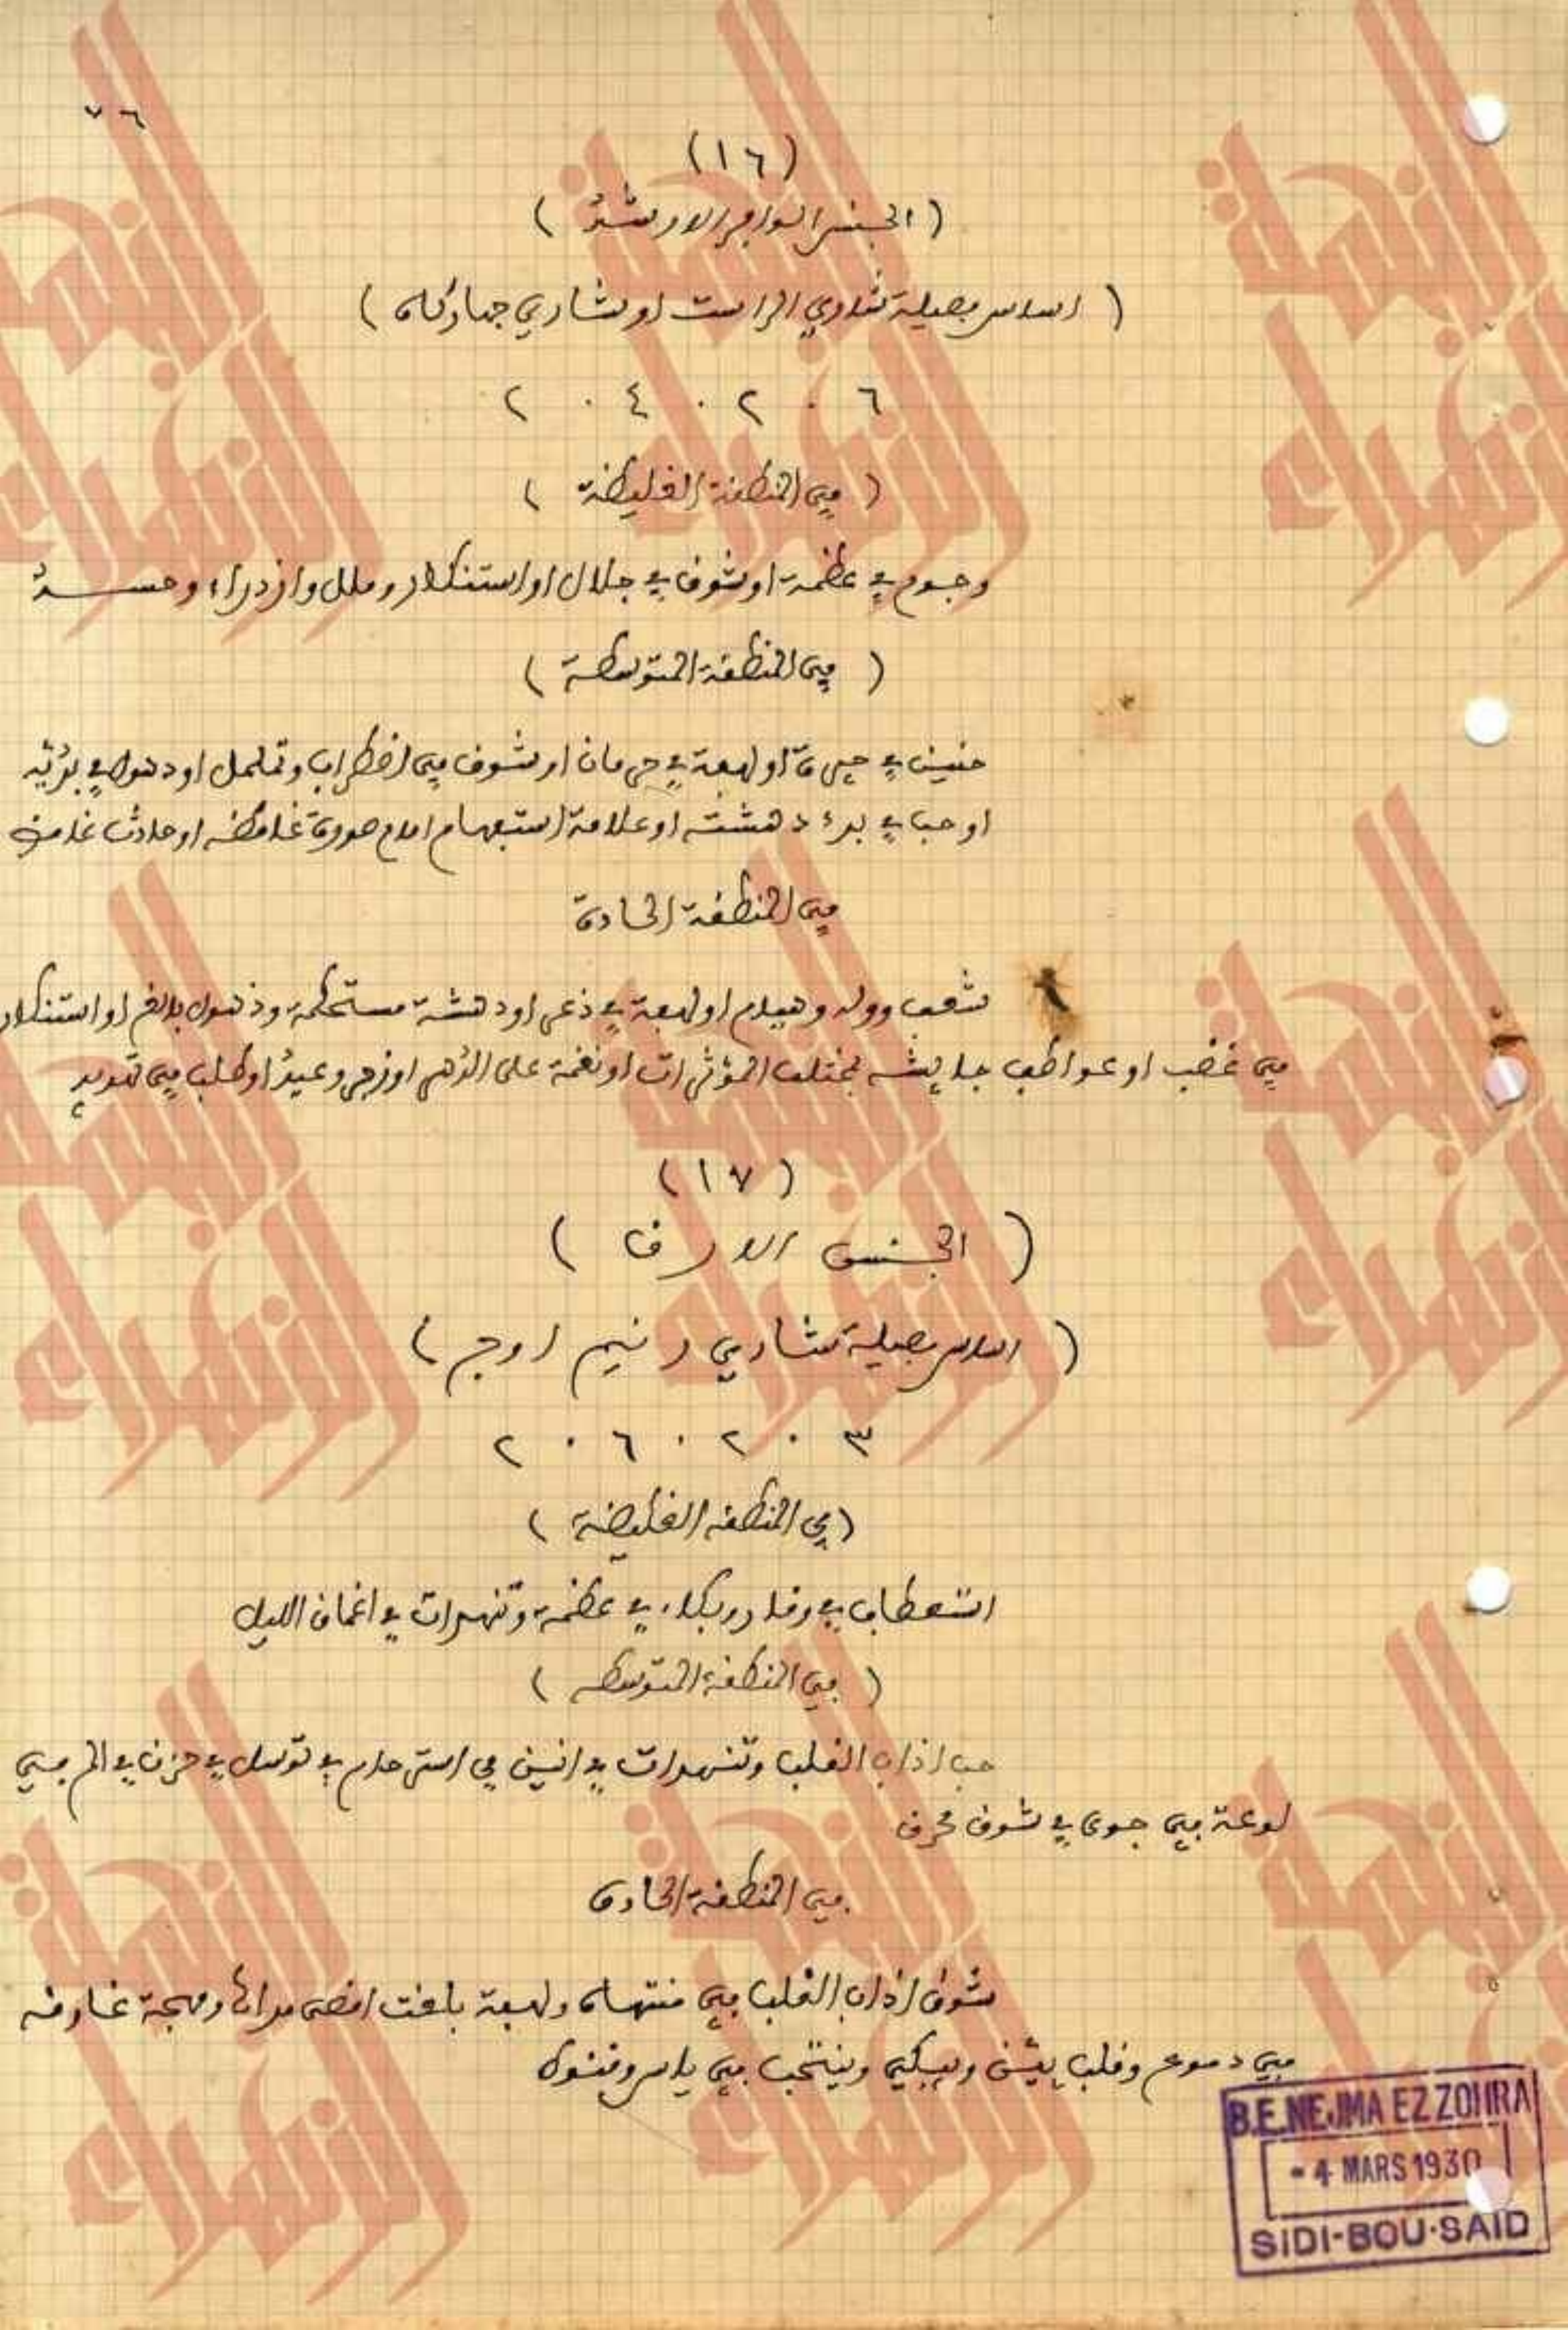 ٧٦
(١٦)
(الجنس الوافر الارشد)
(اساس بصيلة شاري الراست او شاري جهاركاه)
٦ . ٢ . ٤ . ٢
(في المنطقة الغليظة)
وجوم في عظمة او شوق في جلال او استنكار وملل وازدراء وحسد
(في المنطقة المتوسطة)
حنين في حيرة او لهفة في حرمان او شوق في اضطراب وتململ او ذهول في
او حب في بدء دهشته او علامة استفهام امام صورة غامضه او حادث غامض
في المنطقة الحادة
شغف ووله وهيام او لهفة في ذعر او دهشة مستحكمة وذهول بالغ او استنكار
في غضب او عواطف جايشه بمختلف المؤثرات او نقمة على الدهر او زجر وعيد او طلب في تهديد
(١٧)
(الجنس الارق)
(اساس بصيلة شاري نيم اوج)
٣ . ٢ . ٦ . ٢
(في المنطقه الغليضة)
استعطاف في وقار وبكاء في عظمة وتنهدات في اعماق الليل
(في المنطقة المتوسطه)
حب اذاب القلب وتنهدات في انين في استرحام في توسل في حزن في الم في
لوعة في جوى في شوق محرق
في المنطقة الحادة
شوق اذاب القلب في منتهاه ولهفة بلغت اقصى مداها ومهجة غارقه
في دموع وقلب يئن ويبكي وينتحب في ياس وقنوط
B.E.NEJMA EZZOHRA
- 4 MARS 1930
SIDI-BOU-SAID
النجمة الزهراء